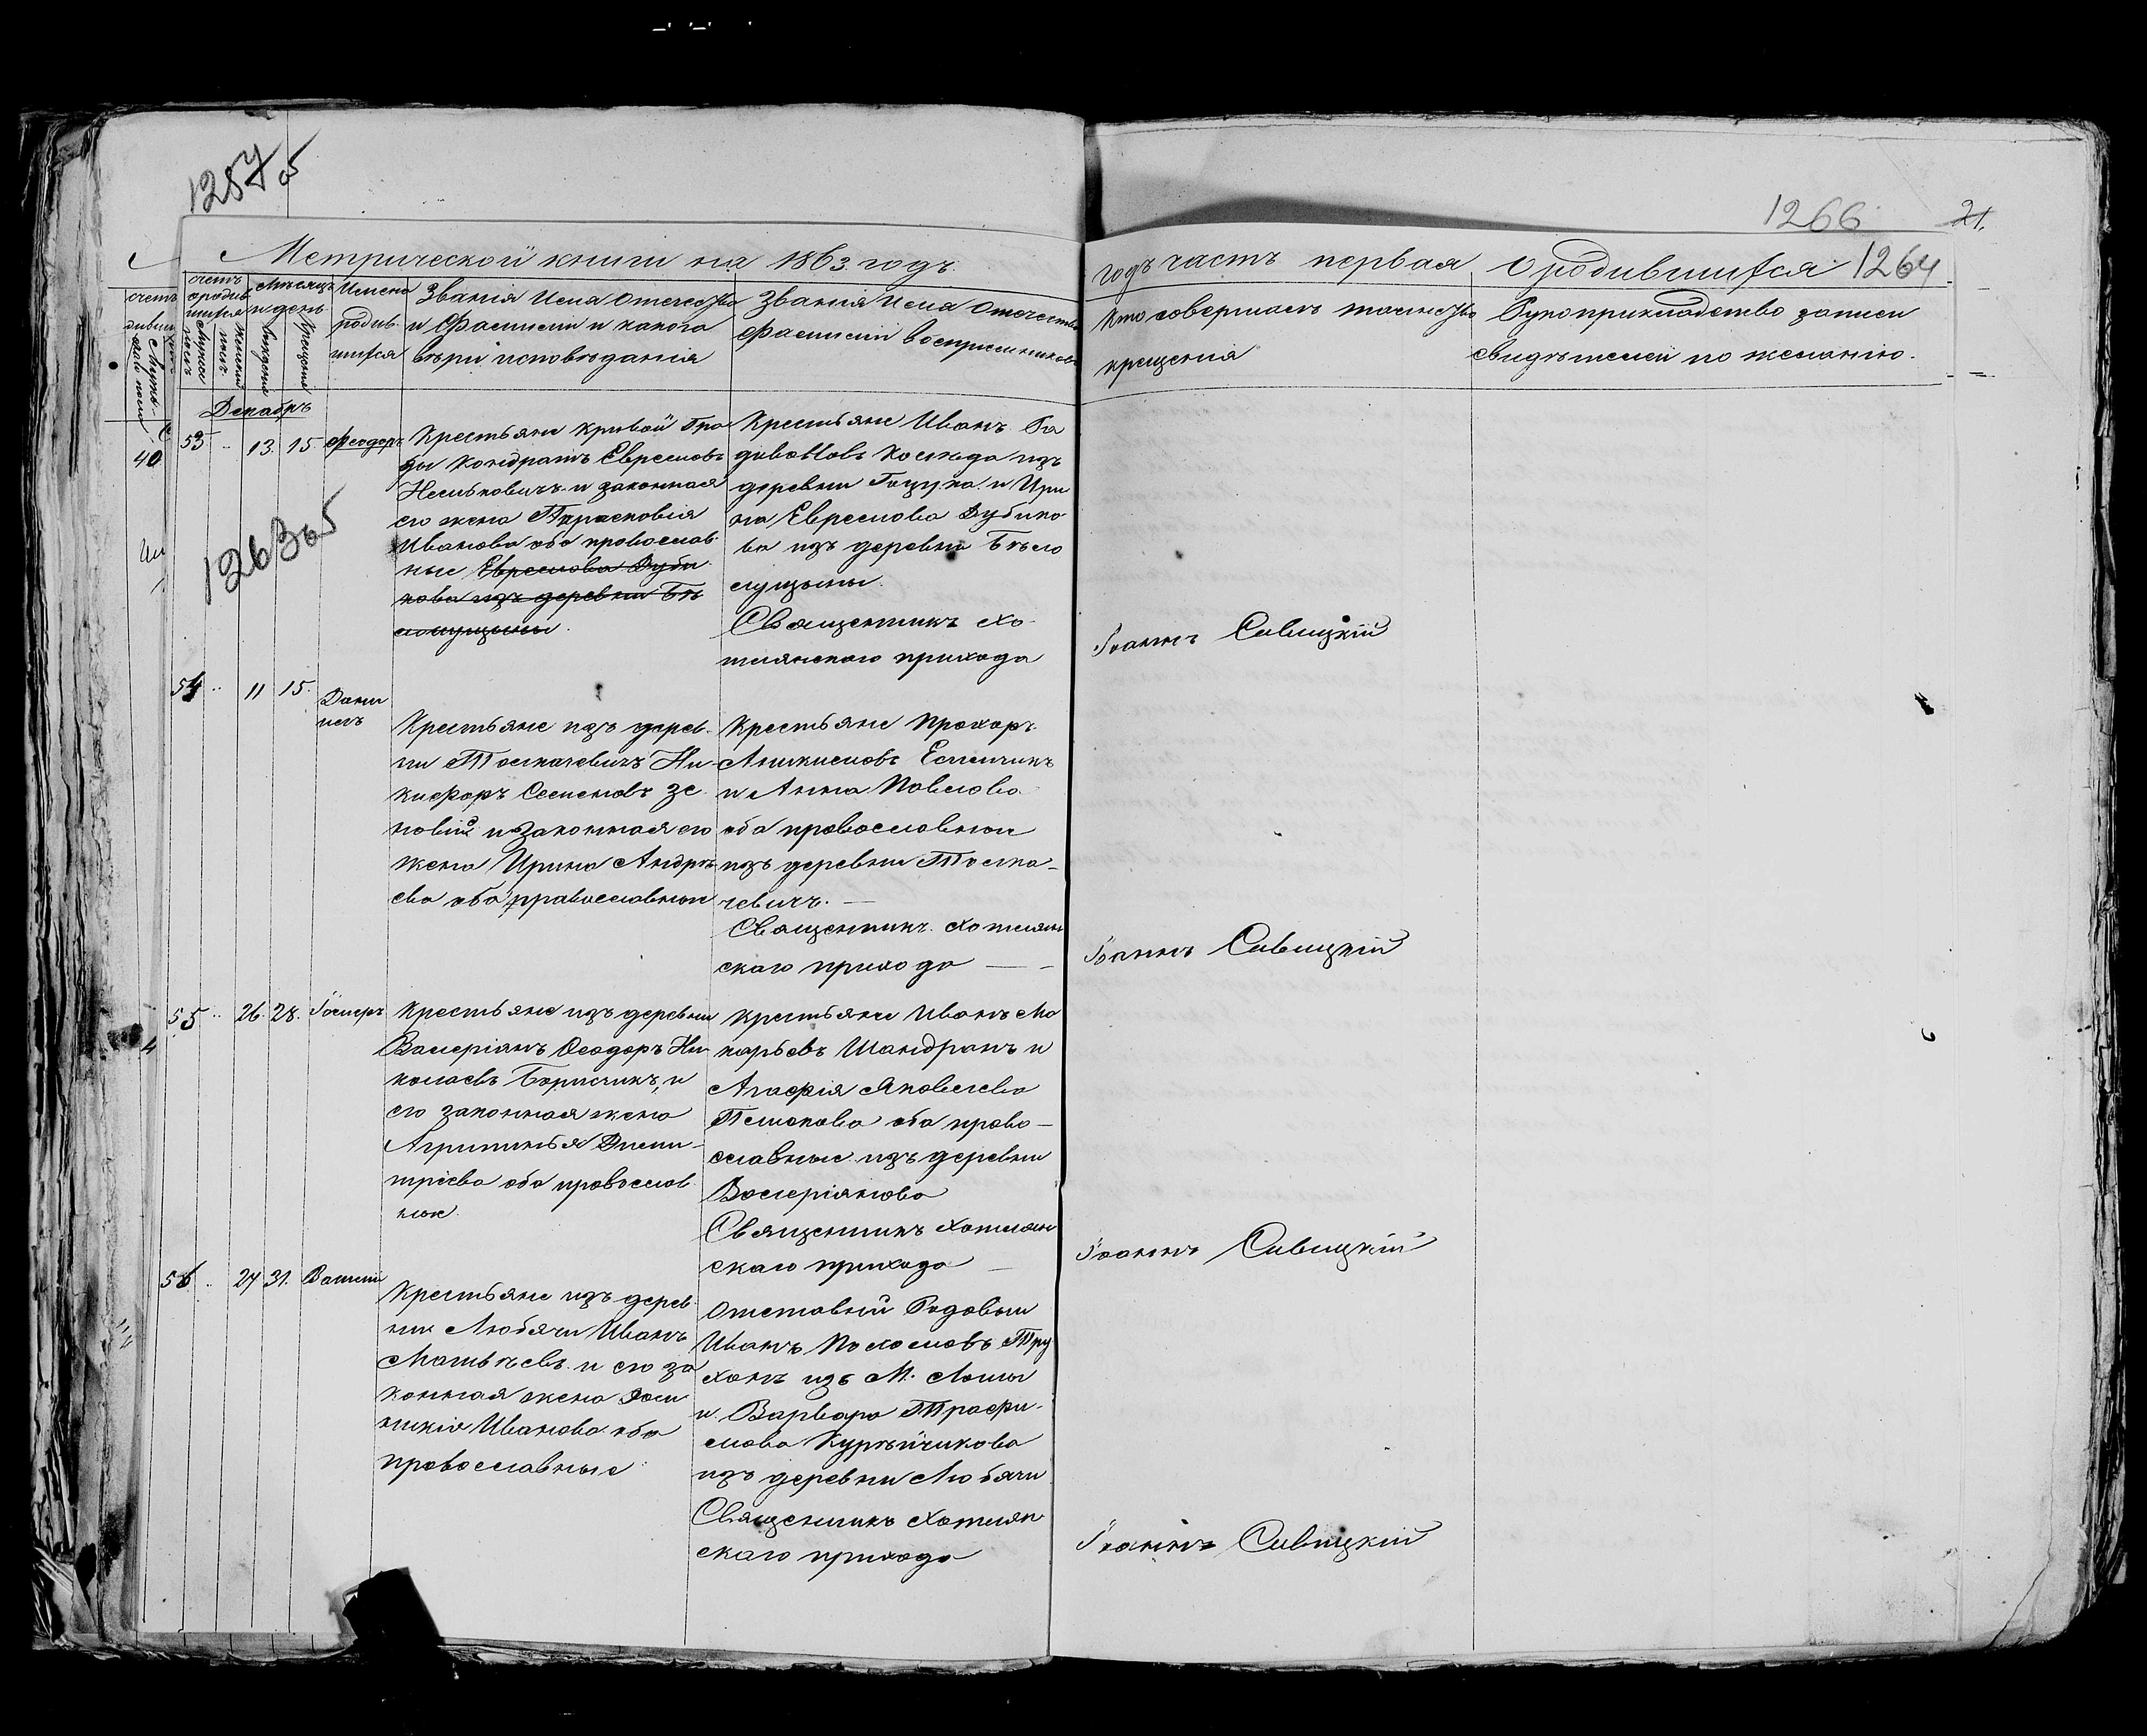 1257 об
1266 21.
Метрической книги на 1863 годъ.
годъ часть первая о родившихся 1264
счетъ родив шихся
Мѣсяцъ и день
Имена родив шихся
Званія Имя Отчество и Фамилія и какого вѣри исповѣданія
Званія Имя Отчество Фамилій восприемниковъ
Кто совершалъ таинство крещенія
Рукоприкладство записи свидѣтелей по желанію.
Декабрь
40
53 13. 15 Феодоръ
Крестьяне Кривой Гра
ды Кондратъ Евремовъ
и законная
его жена Парасковія
Иванова оба православ
ные Евремова Дуби
кова изъ деревни Бѣ
лолущины.
Крестьяне Иванъ
изъ
деревни и Ири
на Евремова Дубико
ва изъ деревни Бѣло
лущины.
Священникъ Хо
тлянскаго прихода
Іоаннъ Савицкій
1263 об
54 11 15. Дани
илъ
Крестьяне изъ дерев
ни Толкачевичъ Ни
кифоръ Семеновъ Зе
новій и законная его
жена Ирина Андрѣ
ева оба православныи
Крестьяне Прохоръ
и Анна Павлова
оба православныи
изъ деревни Толка-
чевичъ.
Священникъ Хотлян
скаго прихода
Іоаннъ Савицкій
55 26. 28. Іосифъ
Крестьяне изъ деревни
Валеріанъ Феодоръ Ни
колаевъ Борисчикъ, и
его законная жена
Агрипинья Дими-
тріева оба православ
ныи.
Крестьяне Иванъ Ма
карьевъ Шандракъ и
Агафія Яковлева
оба право-
славные изъ деревни
Валеріаново
Священникъ Хотлян
скаго прихода
Іоаннъ Савицкій
56 27 31. Василій
Крестьяне изъ дерев
ни Любячи Иванъ
Матвѣевъ и его за
конная жена Доми
никія Иванова оба
православные
Отставній Рядовыи
Иванъ Тру
ханъ изъ М.
и Варвара Трафи-
мова Курьянчикова
изъ деревни Любячи
Священникъ Хотлян
скаго прихода
Іоаннъ Савицкій